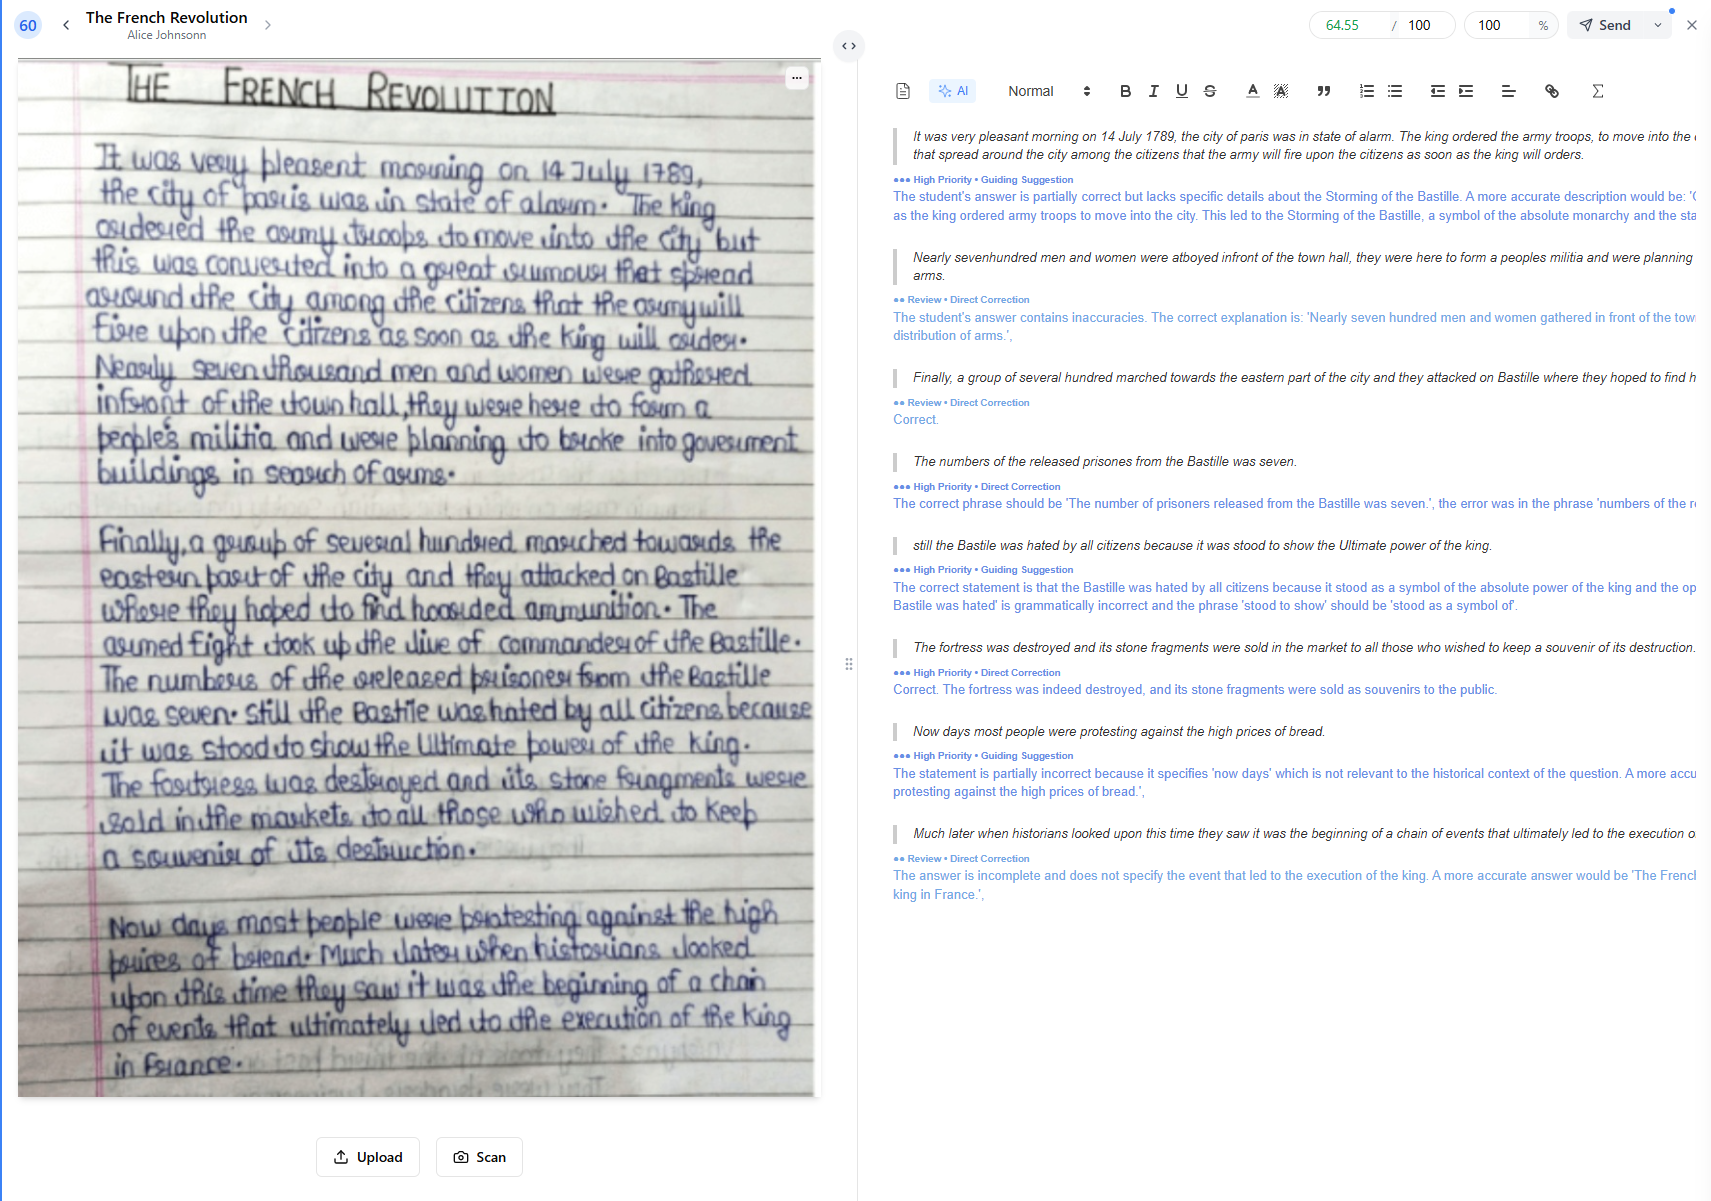 60
The French Revolution
Alice Johnsonn
64.55 / 100
100 %
Send
THE FRENCH REVOLUTION
It was very pleasent morning on 14 July 1789,
the city of paris was in state of alarm. The king
ordered the army troops to move into the city but
this was converted into a great rumour that spread
around the city among the citizens that the army will
fire upon the citizens as soon as the king will order.
Nearly seven thousand men and women were gathered
infront of the town hall, they were here to form a
people's militia and were planning to broke into goverment
buildings in search of arms.
Finally, a group of several hundred marched towards the
eastern part of the city and they attacked on Bastille
where they hoped to find hoarded ammunition. The
armed fight took up the live of commander of the Bastille.
The numbers of the released prisoner from the Bastille
was seven. still the Bastile was hated by all citizens because
it was stood to show the Ultimate power of the king.
The fortress was destroyed and its stone fragments were
sold in the markets to all those who wished to keep
a souvenir of its destruction.
Now days most people were protesting against the high
prices of bread. Much later when historians looked
upon this time they saw it was the beginning of a chain
of events that ultimately led to the execution of the king
in France.
Upload
Scan
AI
Normal
B I U S A
It was very pleasant morning on 14 July 1789, the city of paris was in state of alarm. The king ordered the army troops, to move into the
that spread around the city among the citizens that the army will fire upon the citizens as soon as the king will orders.
●●● High Priority • Guiding Suggestion
The student's answer is partially correct but lacks specific details about the Storming of the Bastille. A more accurate description would be:
as the king ordered army troops to move into the city. This led to the Storming of the Bastille, a symbol of the absolute monarchy and the
Nearly sevenhundred men and women were atboyed infront of the town hall, they were here to form a peoples militia and were planning
arms.
●● Review • Direct Correction
The student's answer contains inaccuracies. The correct explanation is: 'Nearly seven hundred men and women gathered in front of the
distribution of arms.',
Finally, a group of several hundred marched towards the eastern part of the city and they attacked on Bastille where they hoped to find
●● Review • Direct Correction
Correct.
The numbers of the released prisones from the Bastille was seven.
●●● High Priority • Direct Correction
The correct phrase should be 'The number of prisoners released from the Bastille was seven.', the error was in the phrase 'numbers of the
still the Bastile was hated by all citizens because it was stood to show the Ultimate power of the king.
●●● High Priority • Guiding Suggestion
The correct statement is that the Bastille was hated by all citizens because it stood as a symbol of the absolute power of the king and the
Bastile was hated' is grammatically incorrect and the phrase 'stood to show' should be 'stood as a symbol of'.
The fortress was destroyed and its stone fragments were sold in the market to all those who wished to keep a souvenir of its destruction.
●●● High Priority • Direct Correction
Correct. The fortress was indeed destroyed, and its stone fragments were sold as souvenirs to the public.
Now days most people were protesting against the high prices of bread.
●●● High Priority • Guiding Suggestion
The statement is partially incorrect because it specifies 'now days' which is not relevant to the historical context of the question. A more
protesting against the high prices of bread.',
Much later when historians looked upon this time they saw it was the beginning of a chain of events that ultimately led to the execution
●● Review • Direct Correction
The answer is incomplete and does not specify the event that led to the execution of the king. A more accurate answer would be 'The
king in France.',